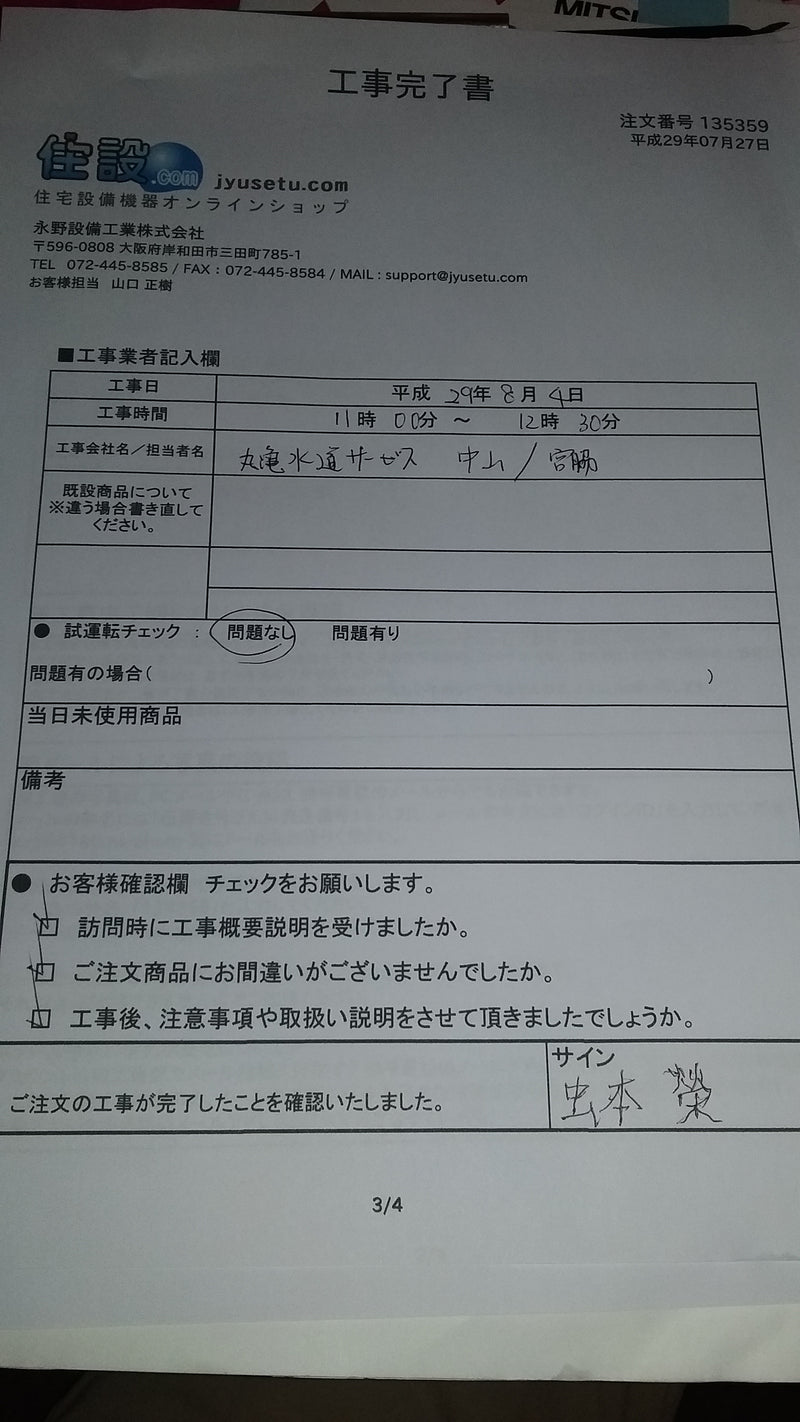 MITSU
工事完了書
注文番号 135359
平成29年07月27日
住設.com jyusetu.com
住宅設備機器オンラインショップ
永野設備工業株式会社
〒596-0808 大阪府岸和田市三田町785-1
TEL 072-445-8585 / FAX : 072-445-8584 / MAIL : support@jyusetu.com
お客様担当 山口 正樹
■工事業者記入欄
工事日 平成 29年 8月 4日
工事時間 11時 00分 ～ 12時 30分
工事会社名／担当者名 丸亀水道サービス 中山 / 宮脇
既設商品について
※違う場合書き直して
ください。
● 試運転チェック : 問題なし 問題有り
問題有の場合( )
当日未使用商品
備考
● お客様確認欄 チェックをお願いします。
□ 訪問時に工事概要説明を受けましたか。
□ ご注文商品にお間違いがございませんでしたか。
□ 工事後、注意事項や取扱い説明をさせて頂きましたでしょうか。
サイン
ご注文の工事が完了したことを確認いたしました。
虫本 榮
3/4